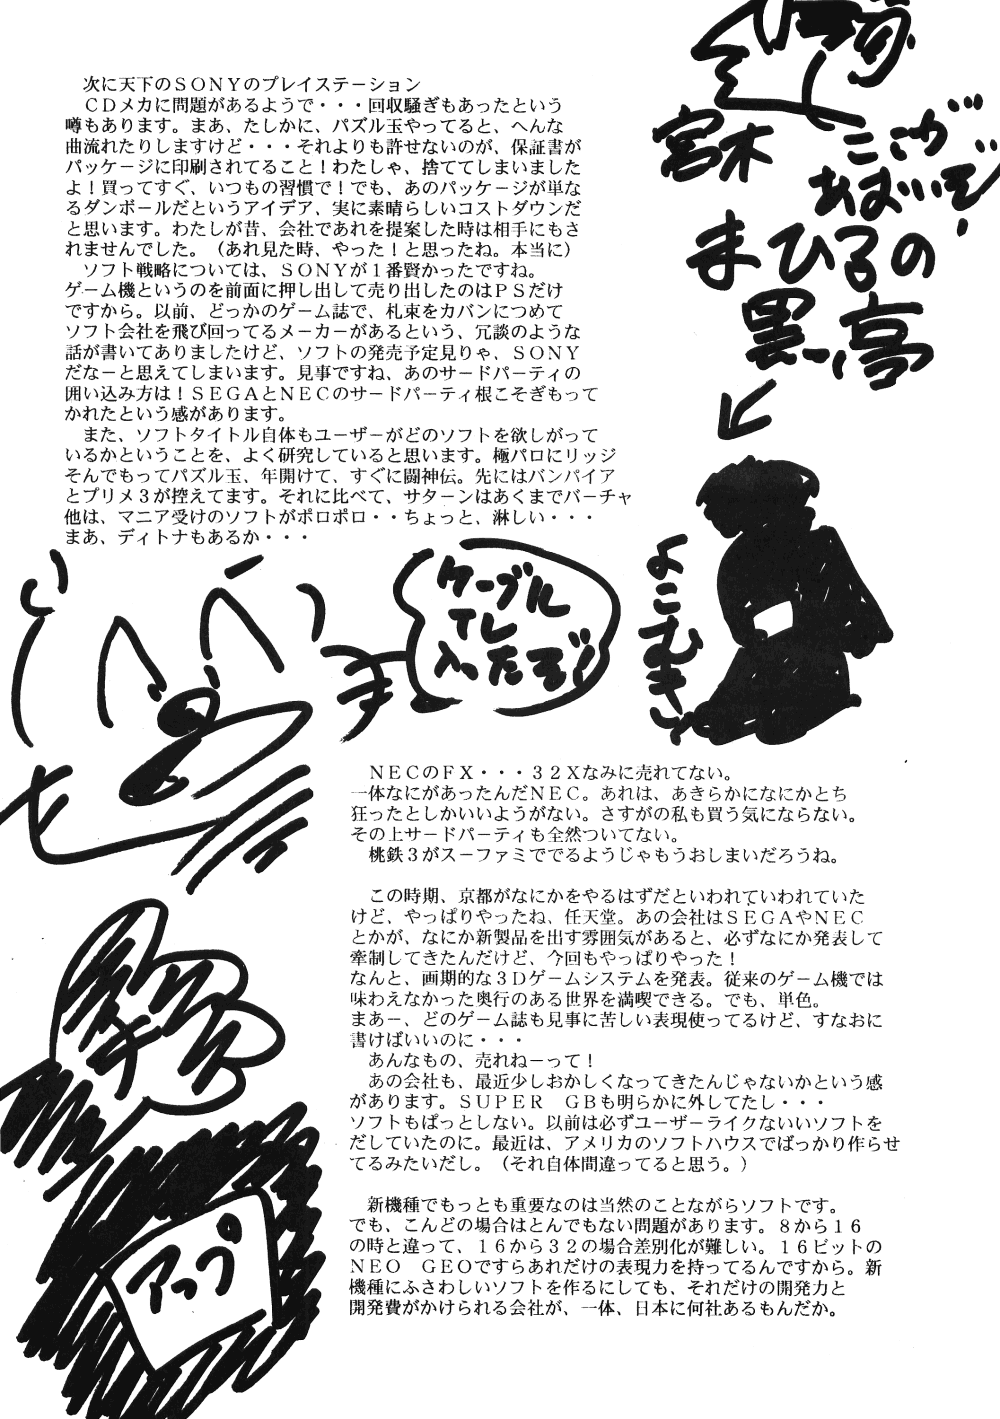 次に天下のＳＯＮＹのプレイステーション
ＣＤメカに問題があるようで・・・回収騒ぎもあったという
噂もあります。まあ、たしかに、パズル玉やってると、へんな
曲流れたりしますけど・・・それよりも許せないのが、保証書が
パッケージに印刷されてること！わたしゃ、捨ててしまいました
よ！買ってすぐ、いつもの習慣で！でも、あのパッケージが単な
るダンボールだというアイデア、実に素晴らしいコストダウンだ
と思います。わたしが昔、会社であれを提案した時は相手にもさ
れませんでした。（あれ見た時、やった！と思ったね。本当に）
ソフト戦略については、ＳＯＮＹが１番賢かったですね。
ゲーム機というのを前面に押し出して売り出したのはＰＳだけ
ですから。以前、どっかのゲーム誌で、札束をカバンにつめて
ソフト会社を飛び回ってるメーカーがあるという、冗談のような
話が書いてありましたけど、ソフトの発売予定見りゃ、ＳＯＮＹ
だなーと思えてしまいます。見事ですね、あのサードパーティの
囲い込み方は！ＳＥＧＡとＮＥＣのサードパーティ根こそぎもって
かれたという感があります。
また、ソフトタイトル自体もユーザーがどのソフトを欲しがって
いるかということを、よく研究していると思います。極パロにリッジ
そんでもってパズル玉、年開けて、すぐに闘神伝。先にはバンパイア
とプリメ３が控えてます。それに比べて、サターンはあくまでバーチャ
他は、マニア受けのソフトがポロポロ・・ちょっと、淋しい・・・
まあ、ディトナもあるか・・・
宮木
ここが
あまいぞ！
まひるの
黒亭
よこむき
ケーブル
テレ
入ったぞ！
ＮＥＣのＦＸ・・・３２Ｘなみに売れてない。
一体なにがあったんだＮＥＣ。あれは、あきらかになにかとち
狂ったとしかいいようがない。さすがの私も買う気にならない。
その上サードパーティも全然ついてない。
桃鉄３がスーファミででるようじゃもうおしまいだろうね。
この時期、京都がなにかをやるはずだといわれていわれていた
けど、やっぱりやったね、任天堂。あの会社はＳＥＧＡやＮＥＣ
とかが、なにか新製品を出す雰囲気があると、必ずなにか発表して
牽制してきたんだけど、今回もやっぱりやった！
なんと、画期的な３Ｄゲームシステムを発表。従来のゲーム機では
味わえなかった奥行のある世界を満喫できる。でも、単色。
まあー、どのゲーム誌も見事に苦しい表現使ってるけど、すなおに
書けばいいのに・・・
あんなもの、売れねーって！
あの会社も、最近少しおかしくなってきたんじゃないかという感
があります。ＳＵＰＥＲ　ＧＢも明らかに外してたし・・・
ソフトもぱっとしない。以前は必ずユーザーライクないいソフトを
だしていたのに。最近は、アメリカのソフトハウスでばっかり作らせ
てるみたいだし。（それ自体間違ってると思う。）
新機種でもっとも重要なのは当然のことながらソフトです。
でも、こんどの場合はとんでもない問題があります。８から１６
の時と違って、１６から３２の場合差別化が難しい。１６ビットの
ＮＥＯ　ＧＥＯですらあれだけの表現力を持ってるんですから。新
機種にふさわしいソフトを作るにしても、それだけの開発力と
開発費がかけられる会社が、一体、日本に何社あるもんだか。
アップ